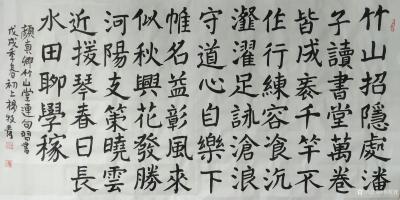 竹山招隱處潘
子讀書堂萬卷
皆成袠千竿不
作行練容飡沆
瀣濯足詠滄浪
守道心自樂下
帷名益彰風來
似秋興花發勝
河陽支策曉雲
近援琴春日長
水田聊學稼
顏真卿竹山堂連句習書
戊戌年春初上楊牧青